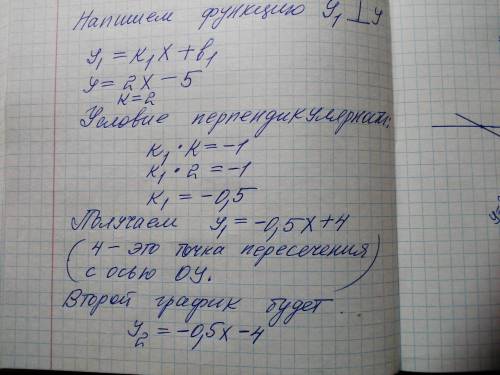 Напишем функцию y₁ ⊥ y
y₁ = к₁x + в₁
y = 2x − 5
к = 2
Условие перпендикулярности:
к₁ · к = −1
к₁ · 2 = −1
к₁ = −0,5
Получаем y₁ = −0,5x + 4
(4 – это точка пересечения
с осью OY.)
Второй график будет
y₂ = −0,5x − 4